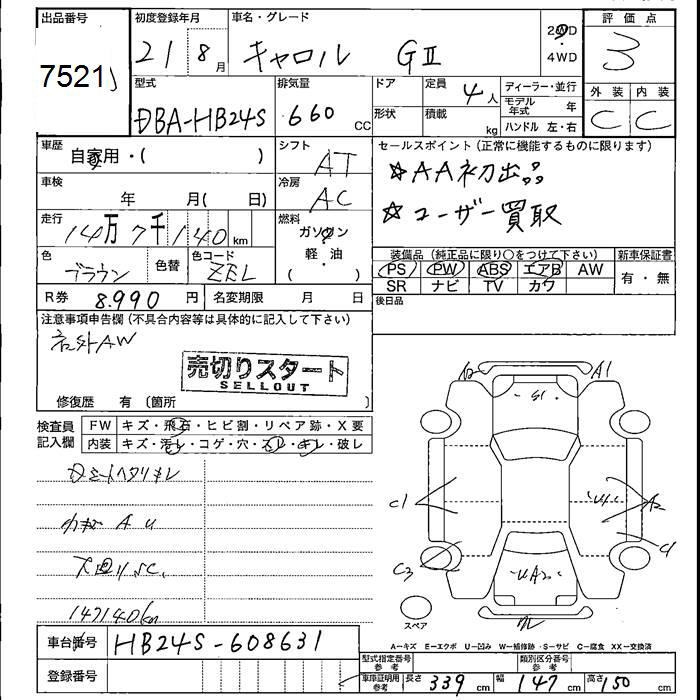 出品番号 初度登録年月 車名・グレード 評価点
7521 21 8月 キャロル GⅡ 2WD・4WD 3
型式 排気量 ドア 定員 ディーラー・並行 外装 内装
DBA-HB24S 660 CC 4人 モデル年式 年 C C
形状 積載 kg ハンドル 左・右
車歴 シフト セールスポイント(正常に機能するものに限ります)
自家用・( ) AT ☆AA初出品
車検 年 月( 日) 冷房 AC ☆ユーザー買取
走行 14万7千140km 燃料 ガソリン 軽・油 ( ・ )
色 ブラウン 色替 色コード ZEL
装備品(純正品に限り○をつけて下さい) 新車保証書
PS PW ABS エアB AW 有・無
SR ナビ TV カワ
R券 8,990円 名変期限 月 日 後日品
注意事項申告欄(不具合内容等は具体的に記入して下さい)
社外AW
売切りスタート
SELLOUT
修復歴 有〔箇所 〕
検査員記入欄 FW キズ・飛石・ヒビ割・リペア跡・X要
内装 キズ・汚レ・コゲ・穴・スレ・キレ・破レ
A1
S1
C1 A2
C1
C3
スペア
147140km
A－キズ E－エクボ U－凹み W－補修跡・S－サビ C－腐食 XX－交換済
車台番号 HB24S-608631
登録番号
型式指定番号参考 類別区分番号参考
車庫証明用参考 長さ 339cm 幅 147cm 高さ 150cm